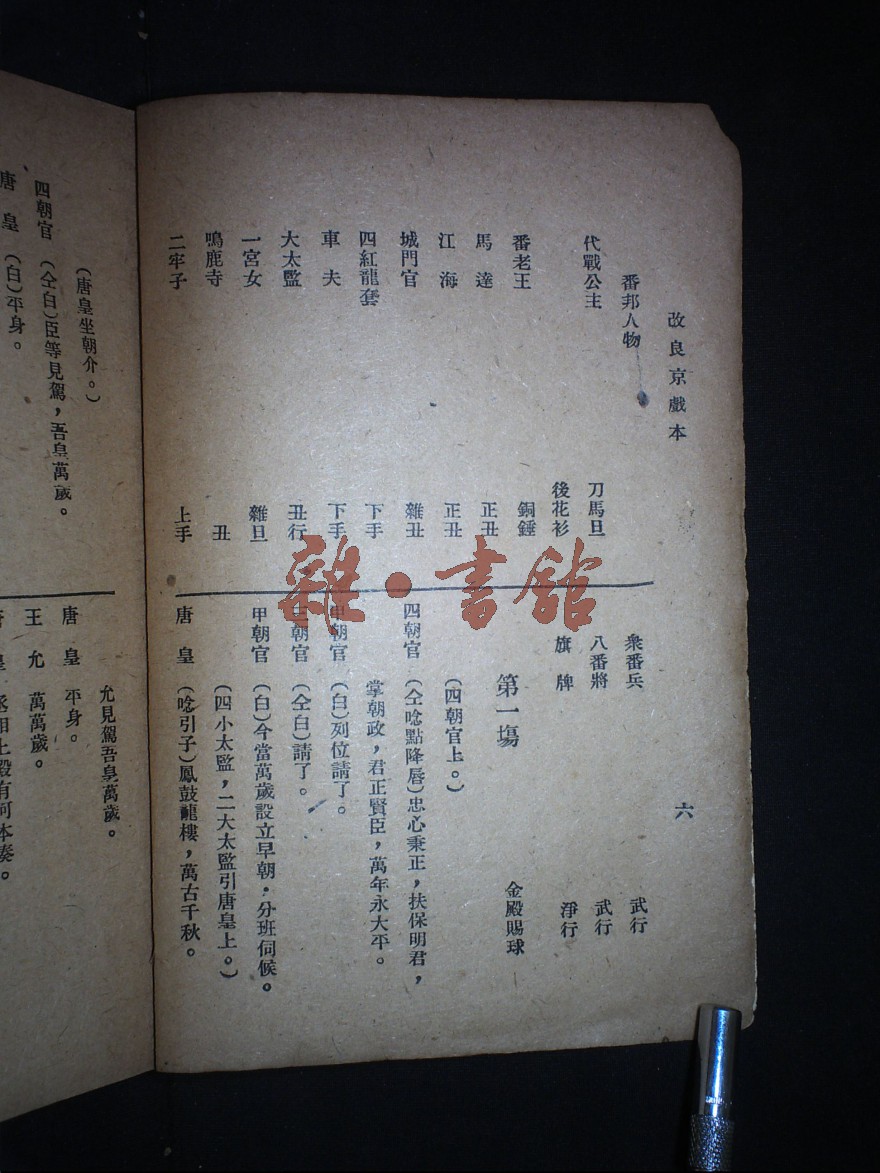 改良京戲本 六
番邦人物
代戰公主 刀馬旦
後花衫
番老王 銅錘
馬達 正丑
江海 正丑
城門官 雜丑
四紅龍套 下手
車夫 下手
大太監 丑行
一宮女 雜旦
鳴鹿寺 丑
二牢子 上手
衆番兵 武行
八番將 武行
旗牌 淨行
第一塲 金殿賜球
(四朝官上。)
四朝官 (仝唸點降唇)忠心秉正，扶保明君，
掌朝政，君正賢臣，萬年永大平。
甲朝官 (白)列位請了。
朝官 (仝白)請了。
甲朝官 (白)今當萬歲設立早朝・分班伺候。
(四小太監，二大太監引唐皇上。)
唐皇 (唸引子)鳳鼓龍樓，萬古千秋。
(唐皇坐朝介。)
四朝官 (仝白)臣等見駕，吾皇萬歲。
唐皇 (白)平身。
允見駕吾皇萬歲。
唐皇 平身。
王允 萬萬歲。
皇 丞相上殿有何本奏。
雜・書館